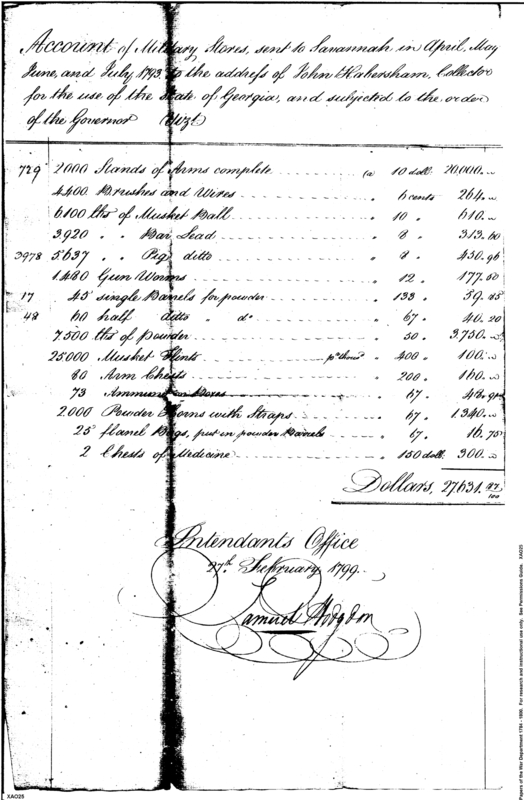 Account of Military Stores, sent to Savannah in April, May
June, and July 1793 to the address of John Habersham, Collector
for the use of the State of Georgia, and subjected to the order
of the Governor Vizt
729 2000 Stands of Arms complete @ 10 doll. 20,000.
4,400 Brushes and Wires " 6 cents 264.
6100 lbs of Musket Ball " 10 " 610.
3,920 " " Bar Lead " 8 " 313.60
3978 5,637 " " Pig ditto " 8 " 450.96
1,480 Gun Worms " 12 " 177.60
17 45 single Barrels for powder " 133 " 59.85
48 60 half ditto " do " 67 " 40.20
7,500 lbs of powder " 50 " 3,750.
25,000 Musket Flints p thous'd " 400 " 100.
80 Arm Chests " 200 " 160.
73 Ammunition Boxes " 67 " 48.91
2,000 Powder Horns with Straps " 67 " 1,340.
25 flanel Bags, put in powder Barrels " 67 " 16.75
2 Chests of Medicine " 150 doll. 300.
Dollars, 27631. 87/100
Intendant's Office
27th February 1799.
Samuel Hodgdon
XAO25
Papers of the War Department 1784 - 1800. For research and instructional use only. See Permissions Guide. XAO25